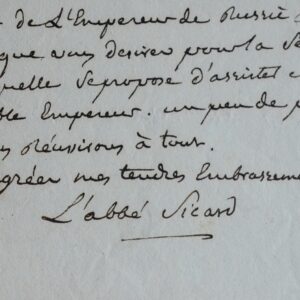 de L'Empereur de Russie
que vous desirez pour la Se
quelle Se propose d'assister
ble Empereur. un peu de p
s Réussirons à tout.
gréer mes tendres Embrassemen
L'abbé Sicard